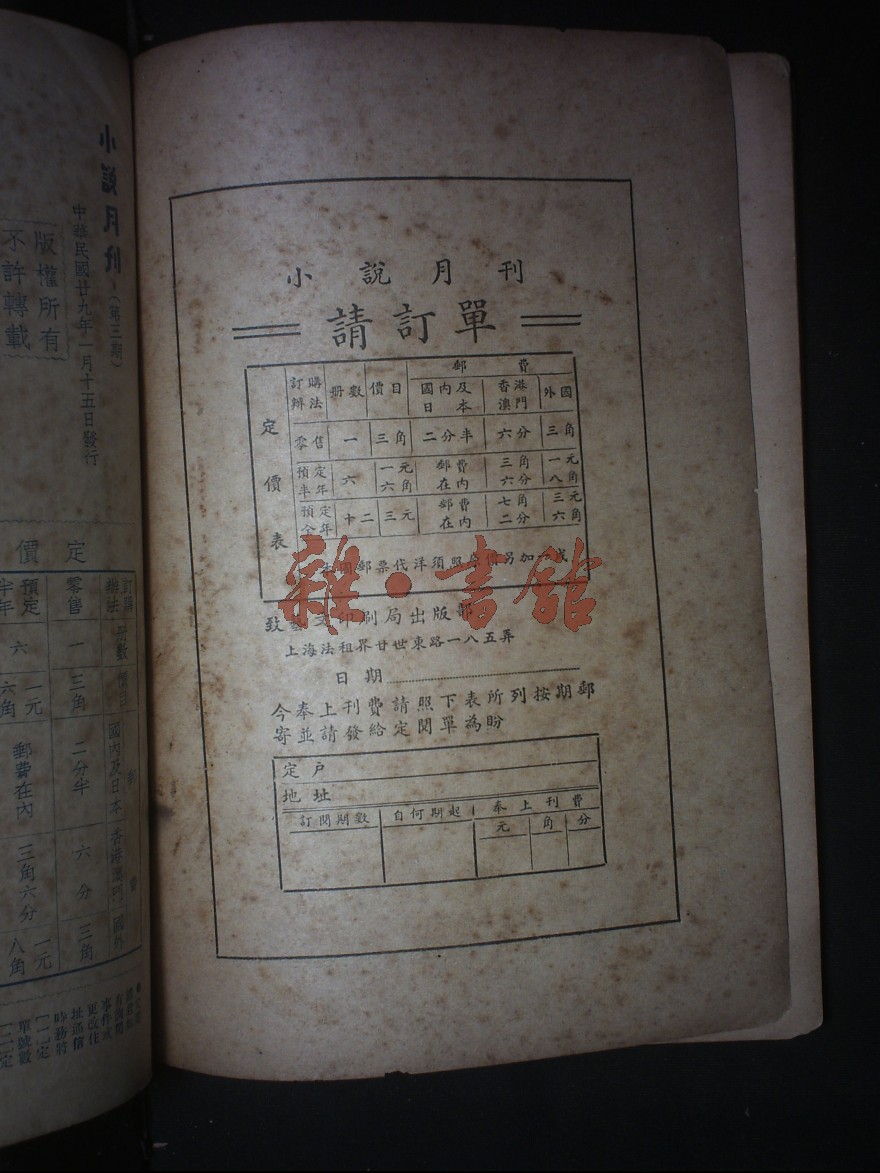 小說月刊
請訂單
定價表
訂購辦法 册數 價目 郵費
國內及日本 香港澳門 國外
零售 一 三角 二分半 六分 三角
預定半年 六 一元六角 郵費在內 三角六分 一元八角
預定全年 十二 三元 郵費在內 七角二分 三元六角
郵票代洋須照
另加一成
雜·書館
致
文印刷局出版部
上海法租界廿世東路一八五弄
日期
今奉上刊費請照下表所列按期郵
寄並請發給定閱單為盼
定戶
地址
訂閱期數 自何期起 奉上刊費
元 角 分
小說月刊
(第三期)
中華民國廿九年一月十五日發行
版權所有
不許轉載
定價
訂購辦法 零售 預定半年
册數 一 六
價目 三角 一元六角
國內及日本 二分半 郵費在內
香港澳門 六分 三角六分
國外 三角 一元八角